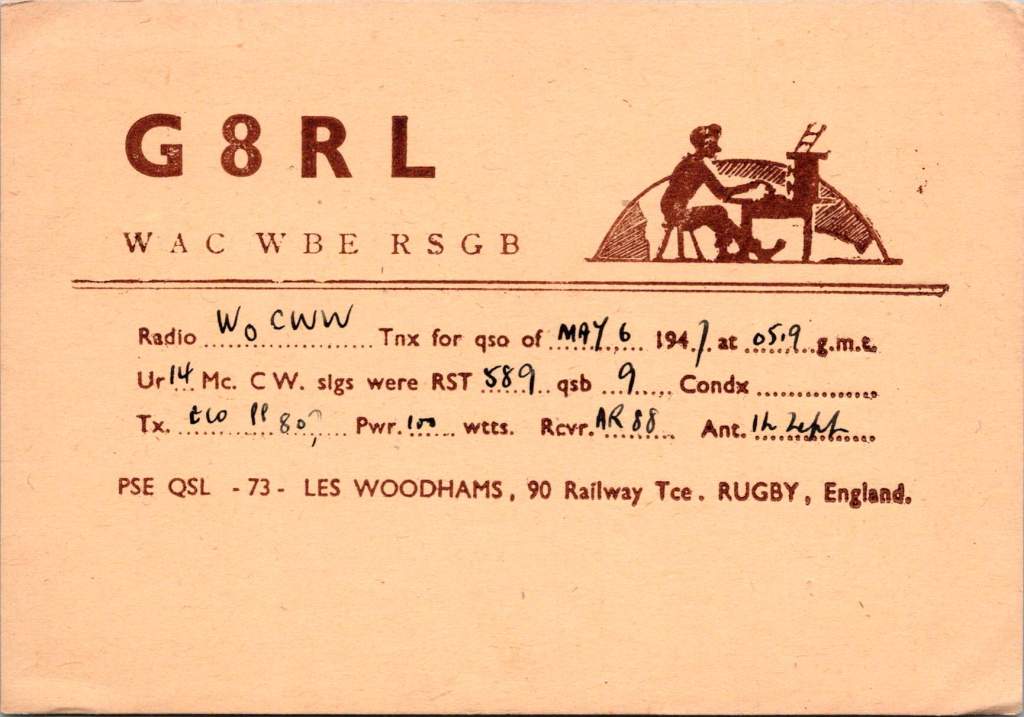 G8RL
WAC WBE RSGB
Radio W0CWW Tnx for qso of MAY 6 1947 at 0519 g.m.t.
Ur 14 Mc. CW. sigs were RST 589 qsb 9 Condx
Tx. PP 807 Pwr. 100 wtts. Rcvr. AR 88 Ant. Zepp
PSE QSL - 73 - LES WOODHAMS, 90 Railway Tce. RUGBY, England.